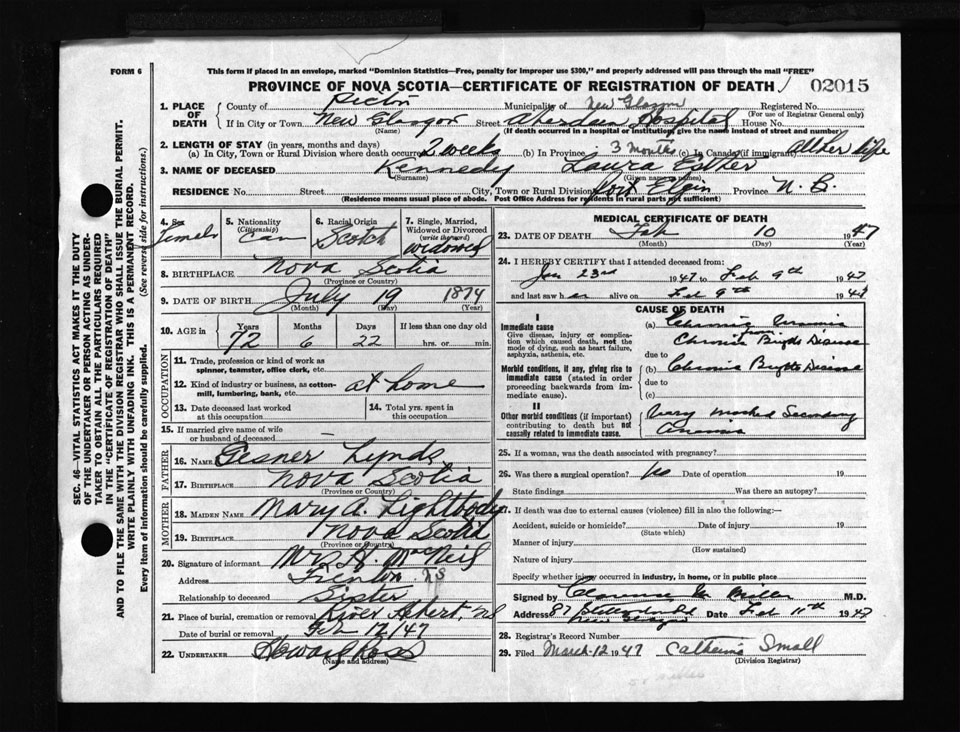 FORM 6
This form if placed in an envelope, marked "Dominion Statistics—Free, penalty for improper use $300," and properly addressed will pass through the mail "FREE"
PROVINCE OF NOVA SCOTIA—CERTIFICATE OF REGISTRATION OF DEATH 02015
SEC. 46—VITAL STATISTICS ACT MAKES IT THE DUTY
OF THE UNDERTAKER OR PERSON ACTING AS UNDER-
TAKER TO OBTAIN ALL THE PARTICULARS REQUIRED
IN THE "CERTIFICATE OF REGISTRATION OF DEATH"
AND TO FILE THE SAME WITH THE DIVISION REGISTRAR WHO SHALL ISSUE THE BURIAL PERMIT.
WRITE PLAINLY WITH UNFADING INK. THIS IS A PERMANENT RECORD.
Every item of information should be carefully supplied. (See reverse side for instructions.)
1. PLACE OF DEATH
County of Pictou Municipality of New Glasgow Registered No.
(For use of Registrar General only)
If in City or Town New Glasgow Street Aberdeen Hospital House No.
(Name) (If death occurred in a hospital or institution, give the name instead of street and number)
2. LENGTH OF STAY (in years, months and days)
(a) In City, Town or Rural Division where death occurred 2 weeks (b) In Province 3 months (c) In Canada (if immigrant) All her life
3. NAME OF DECEASED Kennedy Laura Esther
(Surname) (Given name or names)
RESIDENCE No. Street City, Town or Rural Division Port Elgin Province N. B.
(Residence means usual place of abode. Post Office Address for residents in rural parts not sufficient)
4. Sex Female
5. Nationality (Citizenship) Can
6. Racial Origin Scotch
7. Single, Married, Widowed or Divorced (write the word) widowed
8. BIRTHPLACE Nova Scotia
(Province or Country)
9. DATE OF BIRTH July 19 1874
(Month) (Day) (Year)
10. AGE in Years Months Days If less than one day old
72 6 22 hrs. or min.
OCCUPATION
11. Trade, profession or kind of work as
spinner, teamster, office clerk, etc.
12. Kind of industry or business, as cotton-
mill, lumbering, bank, etc. at home
13. Date deceased last worked
at this occupation
14. Total yrs. spent in
this occupation
15. If married give name of wife
or husband of deceased —
FATHER
16. NAME Gesner Lynds
17. BIRTHPLACE Nova Scotia
(Province or Country)
MOTHER
18. MAIDEN NAME Mary A. Lightbody
19. BIRTHPLACE Nova Scotia
(Province or Country)
20. Signature of informant Mrs H. MacNeil
Address Trenton NS
Relationship to deceased Sister
21. Place of burial, cremation or removal River Hebert, NS
Date of burial or removal Feb 12/47
22. UNDERTAKER Howard Ross
(Name and address)
MEDICAL CERTIFICATE OF DEATH
23. DATE OF DEATH Feb 10 1947
(Month) (Day) (Year)
24. I HEREBY CERTIFY that I attended deceased from:
Jan 23rd 1947 to Feb 9th 1947
and last saw her alive on Feb 9th 1947
CAUSE OF DEATH
I
Immediate cause
Give disease, injury or complica-
tion which caused death, not the
mode of dying, such as heart failure,
asphyxia, asthenia, etc.
(a) Chronic Uremia from
Chronic Brights Disease
due to
Morbid conditions, if any, giving rise to
immediate cause (stated in order
proceeding backwards from im-
mediate cause).
(b) Chronic Brights Disease
due to
(c)
II
Other morbid conditions (if important)
contributing to death but not
causally related to immediate cause.
Very marked Secondary
Anemia
25. If a woman, was the death associated with pregnancy?
26. Was there a surgical operation? No Date of operation 19
State findings Was there an autopsy?
27. If death was due to external causes (violence) fill in also the following:—
Accident, suicide or homicide? Date of injury 19
(State which)
Manner of injury
(How sustained)
Nature of injury
Specify whether injury occurred in industry, in home, or in public place
Signed by Clarence M. Miller M.D.
Address New Glasgow Date Feb 11th 1947
28. Registrar's Record Number
29. Filed March-12 1947 Catherine Small
(Division Registrar)